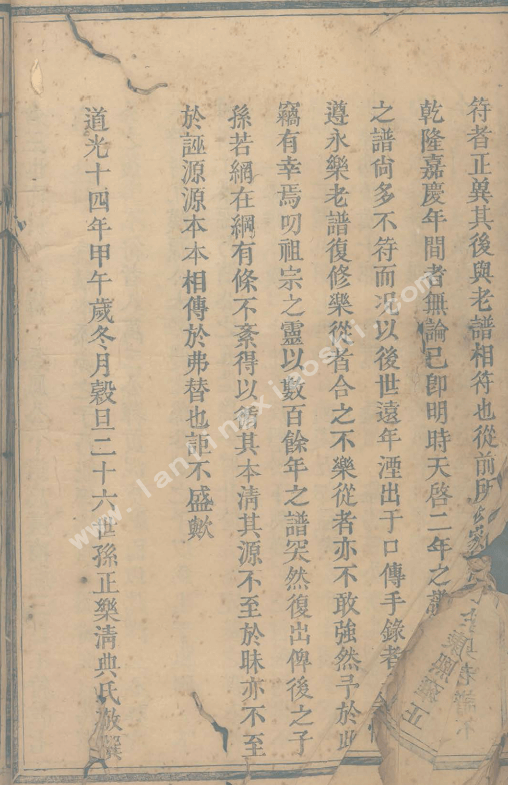 符者正冀其後與老譜相符也從前所
乾隆嘉慶年間者無論已卽明時天啓二年之譜
之譜尙多不符而况以後世遠年湮出于口傳手錄者
遵永樂老譜復修樂從者合之不樂從者亦不敢強然予於此
竊有幸焉叨祖宗之靈以數百餘年之譜突然復出俾後之子
孫若網在綱有條不紊得以循其本淸其源不至於昧亦不至
於誣源源本本相傳於弗替也詎不盛歟
道光十四年甲午歲冬月穀旦二十六世孫正樂淸典氏敬撰
www.lanjingxiaoshi.com